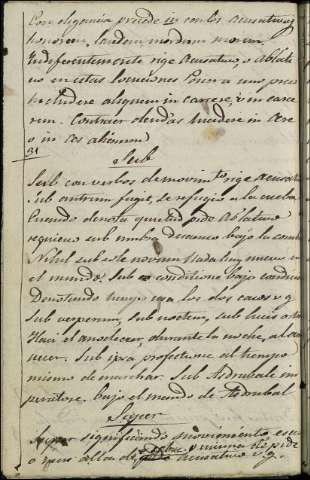 Con elegancia precede in con los acusativos
honorem, laudem, mordem morem.
Indiferentemente rige Acusativo, o Ablati
vo en estas locuciones Poner a uno preso
includere aliquem in carcere, o in carce
rem. Contraer deudas incidere in aere
o in aes alienum
Sub
Sub con verbos de movimto rige acusatº
Sub antrum fugit, se refugio a la cueba
Cuando denota quietud pide Ablativo
requievi sub umbra descanso bajo la sombra
Nihil sub sole novum Nada hay nuevo en
el mundo. Sub conditione bajo condicion
Denotando tiempo rige los dos casos v g
Sub vesperum, sub noctem, sub lucis ortu
Hacia el anochecer, durante la noche, al ama
necer. Sub ipsa profectione al tiempo
mismo de marchar. Sub Asdrubale im
peratore, bajo el mando de Asdrubal
Super
Super significando movimiento
o mas alla de acusativo v g.